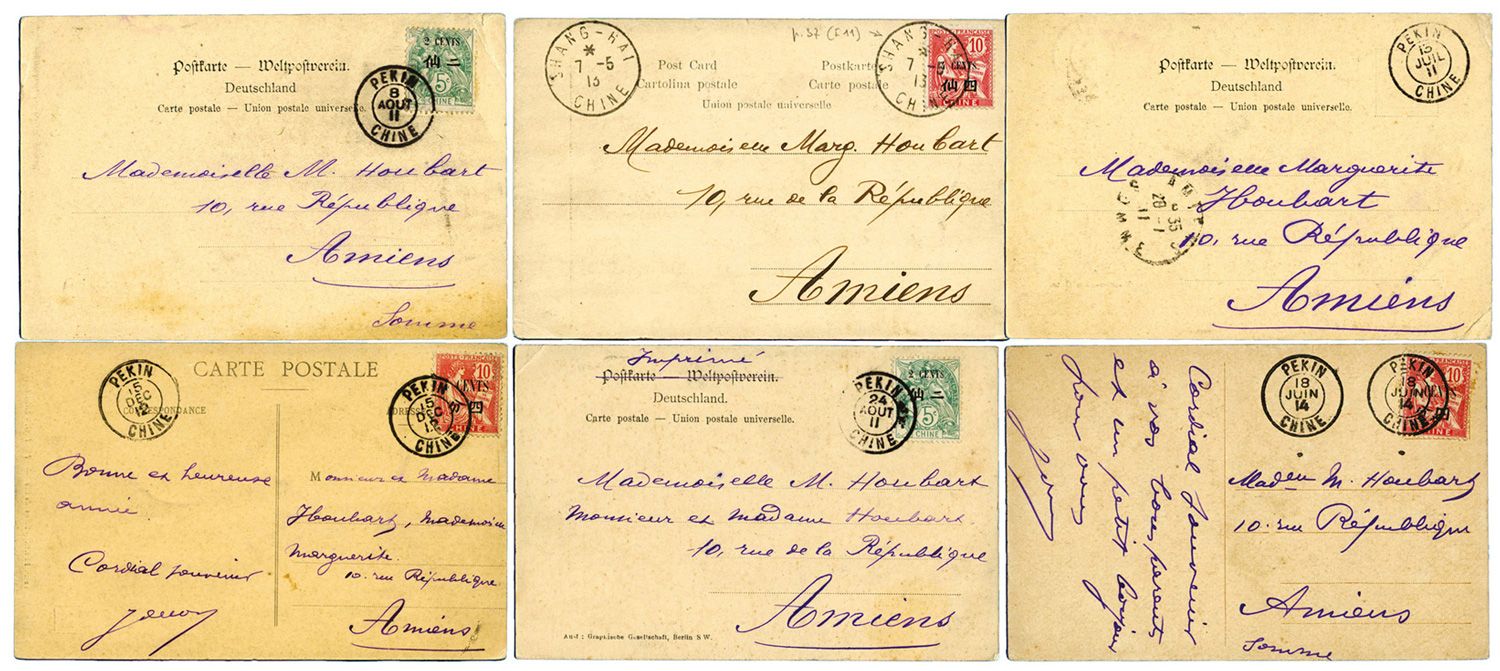 Postkarte — Weltpostverein.
Deutschland
Carte postale — Union postale universelle.
2 CENTS
仙 二
5
CHINE
PEKIN
8
AOUT
11
CHINE
Mademoiselle M. Houbart
10, rue République
Amiens
Somme
SHANG-HAI
*
7 -5
13
CHINE
p. 37 (F11)
SHANG-HAI
*
7 -5
13
CHINE
POSTE FRANÇAISE
10
CENTS
仙 四
CHINE
Post Card Postkarte
Cartolina postale Carte postale
Union postale universelle
Mademoiselle Marg. Houbart
10, rue de la République
Amiens
PEKIN
15
JUIL
11
CHINE
Postkarte — Weltpostverein.
Deutschland
Carte postale — Union postale universelle.
Mademoiselle Marguerite
Houbart
10, rue République
Amiens
AMIENS
6 35
28 -7
11
SOMME
CARTE POSTALE
CORRESPONDANCE
ADRESSE
PEKIN
15
DEC
12
CHINE
PEKIN
15
DEC
12
CHINE
10
CENTS
四
CHINE
Bonne et heureuse
année.
Cordial souvenir
Monsieur et Madame
Houbart, Mademoiselle
Marguerite.
10. rue République
Amiens
Imprimé
Postkarte — Weltpostverein.
Deutschland.
Carte postale — Union postale universelle.
PEKIN
24
AOUT
11
CHINE
2 CENTS
仙 二
5
CHINE
Mademoiselle M. Houbart
Monsieur et Madame Houbart.
10, rue de la République
Amiens
Graphische Gesellschaft, Berlin S.W.
PEKIN
18
JUIN
14
CHINE
PEKIN
18
JUIN
14
CHINE
10
四
CHINE
Cordial souvenir
à vos bons parents
et un petit bonjour
pour vous
Madelle M. Houbart
10. rue République
Amiens
Somme